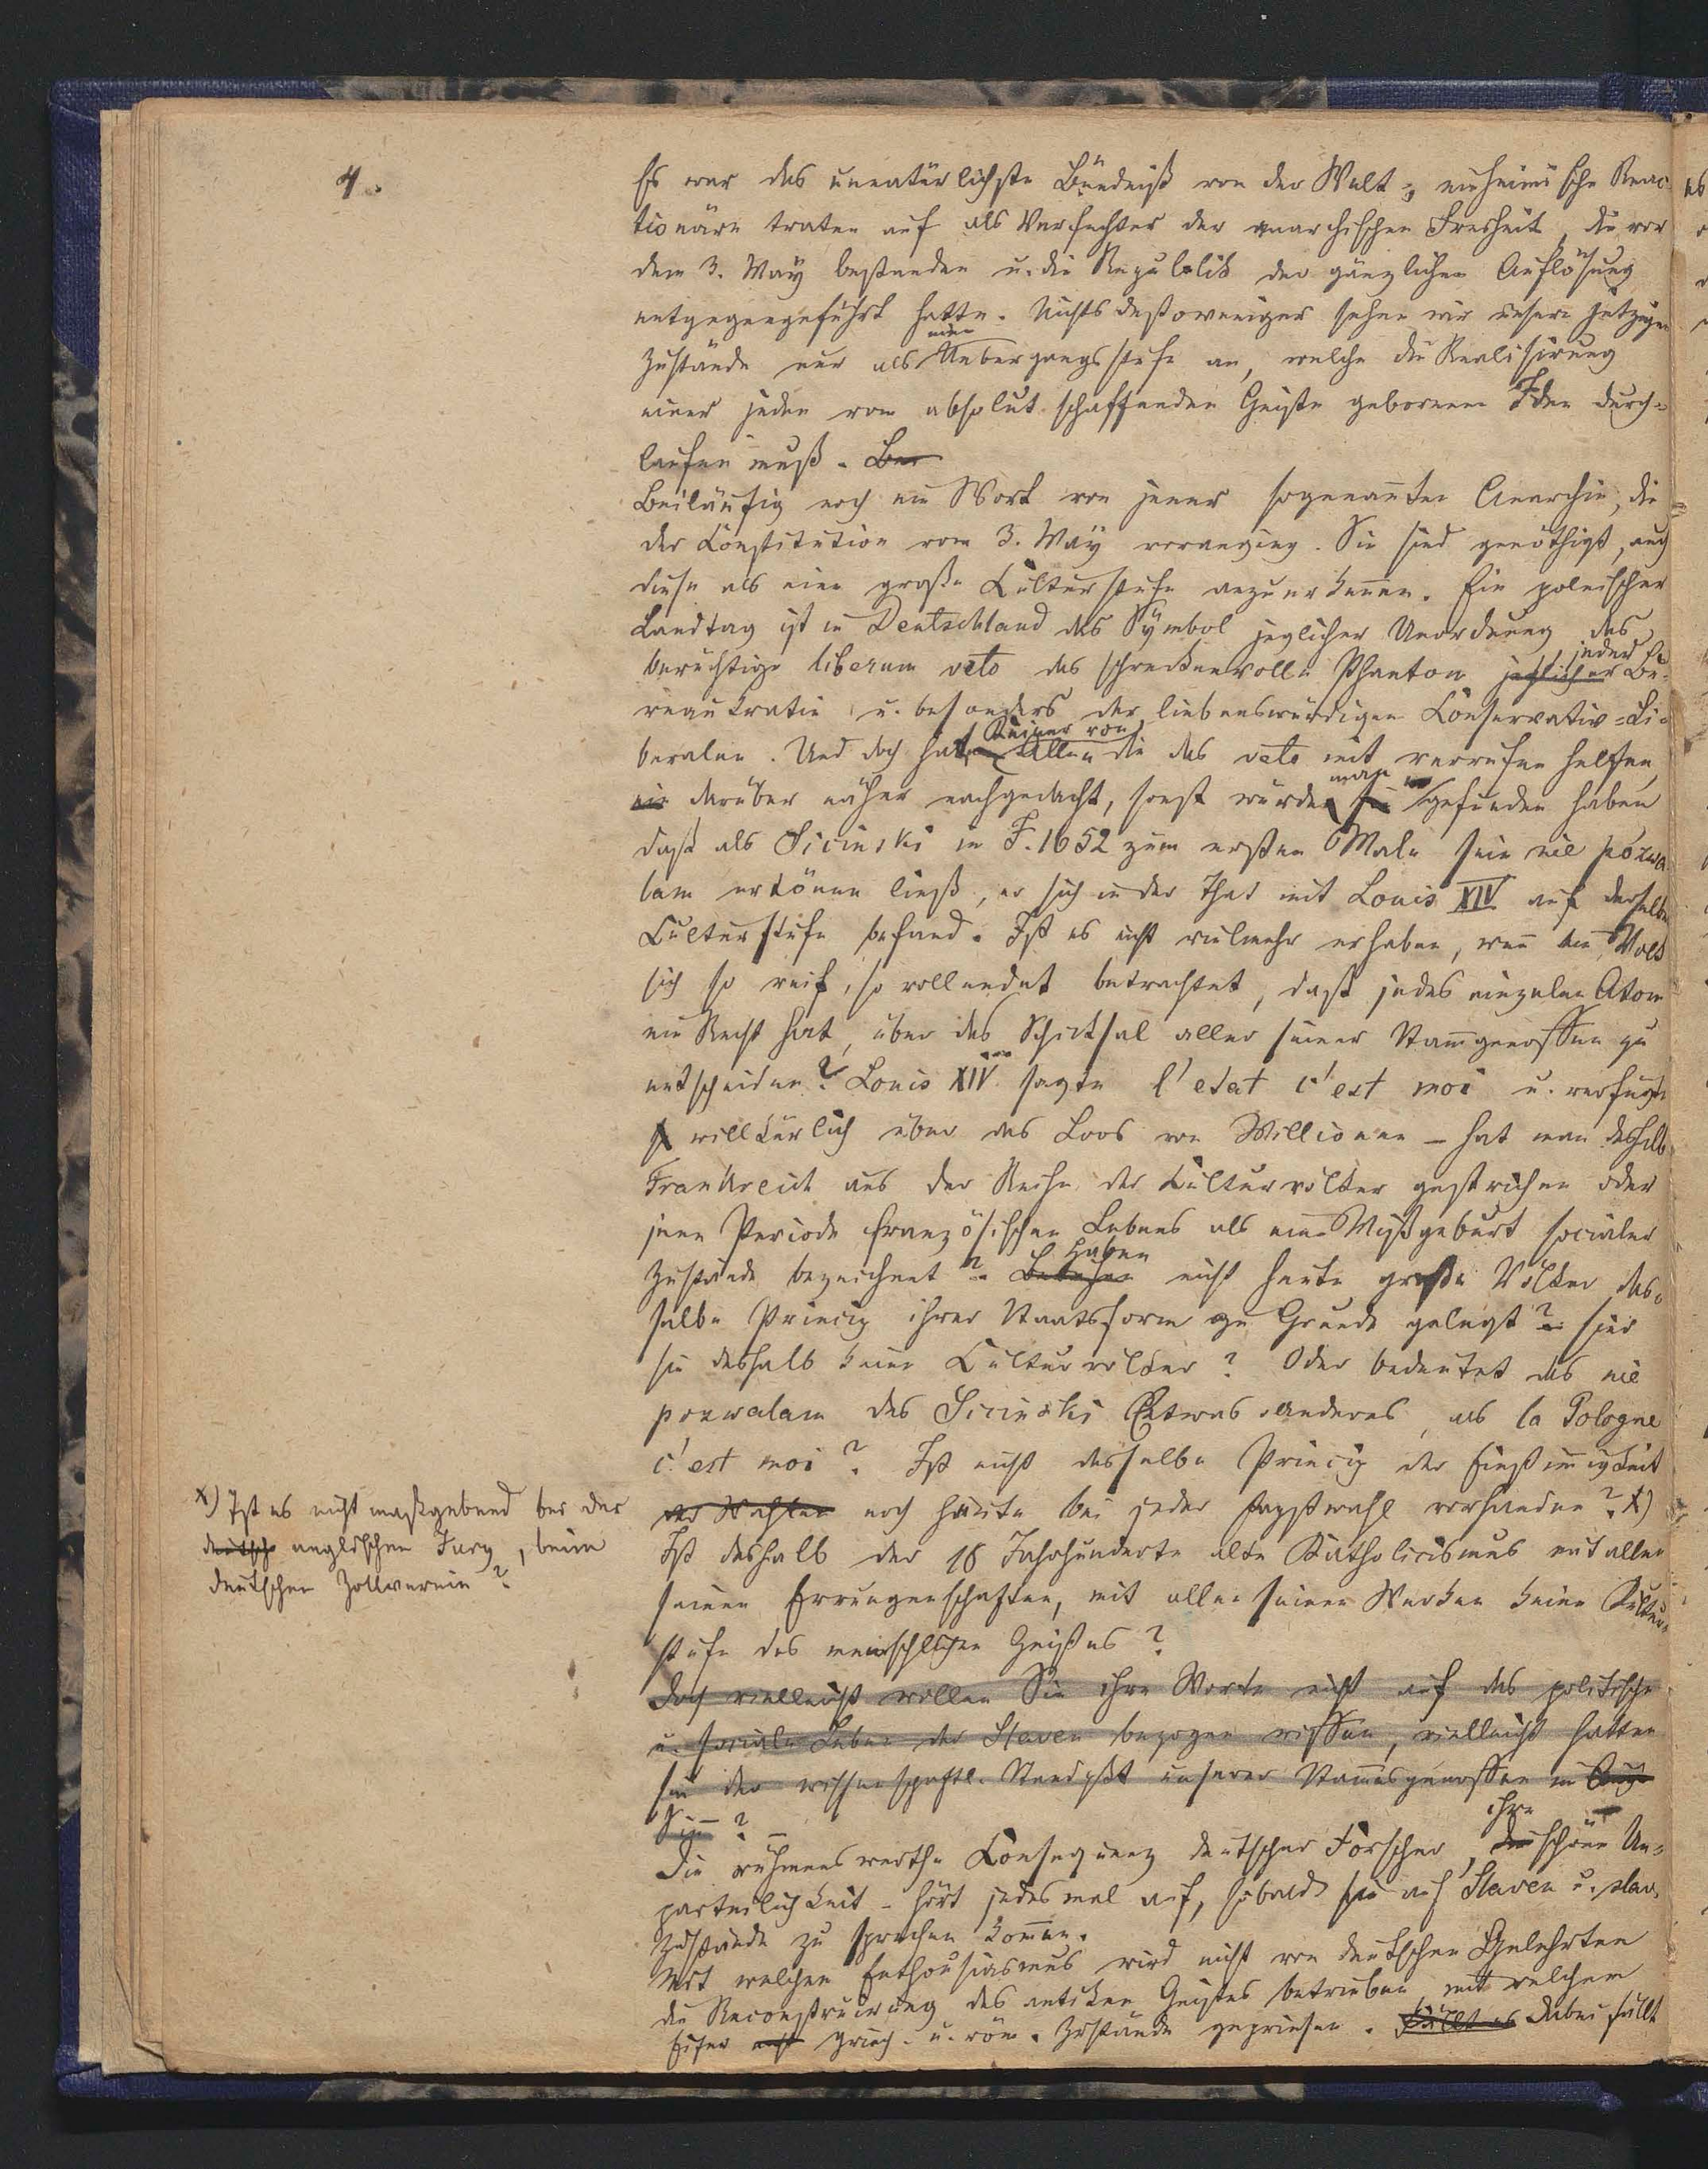 4.
Es war das unnatürlichste Bündniß von der Welt, einheimische Reac-
tionäre traten auf als Verfechter der anarchischen Freiheit, die vor
dem 3. May bestanden u. die Republik der gänzlichen Auflösung
entgegengeführt hatte. Nichts destoweniger sehen wir unsere jetzigen
Zustände nur als eine Uebergangsstufe an, welche die Realisirung
einer jeden vom absolut schaffenden Geiste geborenen Idee durch-
laufen muß. Bei
Beiläufig noch ein Wort von jener sogenannten Anarchie, die
der Constitution vom 3. May voranging. Sie sind genöthigt, auch
diese als eine große Culturstufe anzuerkennen. Ein polnischer
Landtag ist in Deutschland das Symbol jeglicher Unordnung, das
berüchtige liberum veto das schreckenvolle Phantom jeglicher jeder Bü-
reaukratie u. besonders der liebenswürdigen Conservativ-Li-
beralen. Und doch hat Keiner von Allen die das veto mit verrufen helfen,
nie darüber näher nachgedacht, sonst würde sie man gefunden haben
daß als Siciński im J. 1652 zum ersten Male sein nie pozwa-
lam ertönen ließ, er sich in der That mit Louis XIV auf derselben
Culturstufe befand. Ist es nicht vielmehr erhaben, wenn ein Volk
sich so reif, so vollendet betrachtet, daß jedes einzelne Atom
ein Recht hat, über das Schicksal aller seiner Stammgenossen zu
entscheiden? Louis XIV. sagte l'etat c'est moi u. verfügte
willkürlich über das Loos von Millionen – hat man deshalb
Frankreich aus der Reihe der Culturvölker gestrichen oder
jene Periode französischen Lebens als eine Mißgeburt socialer
Zustände bezeichnet? Haben nicht heute große Völker das-
selbe Princip ihrer Staatsform zu Grunde gelegt? sind
sie deshalb keine Culturvölker? Oder bedeutet das nie
pozwalam des Siciński Etwas anderes, als la Pologne
c'est moi? Ist nicht dasselbe Princip der Einstimmigkeit
der Wahlen noch heute bei jeder Papstwahl vorhanden? x)
Ist deshalb der 18 Jahrhunderte alte Katholicismus mit allen
seinen Errungenschaften, mit allen seinen Werken keine Kultur-
stufe des menschlichen Geistes?
Doch vielleicht wollen Sie ihre Worte nicht auf das politische
u. sociale Leben der Slaven bezogen wissen, vielleicht hatten
sie den wissenschaftl. Standpkt unserer Stammesgenossen im Auge
Sinn? –
Die rühmenswerthe Consequenz deutscher Forscher, die ihre schöne Un-
parteilichkeit – hört jedesmal auf, sobald sie auf Slaven u. slav.
Zustände zu sprechen kommen.
Mit welchem Enthousiasmus wird nicht von deutschen Gelehrten
die Reconstruirung des antiken Geistes betrieben, mit welchem
Eifer nicht griech. u. röm. Zustände gepriesen. Fällt es Dabei fällt
x) Ist es nicht maßgebend bei der
deutsche englischen Jury, beim
deutschen Zollverein?